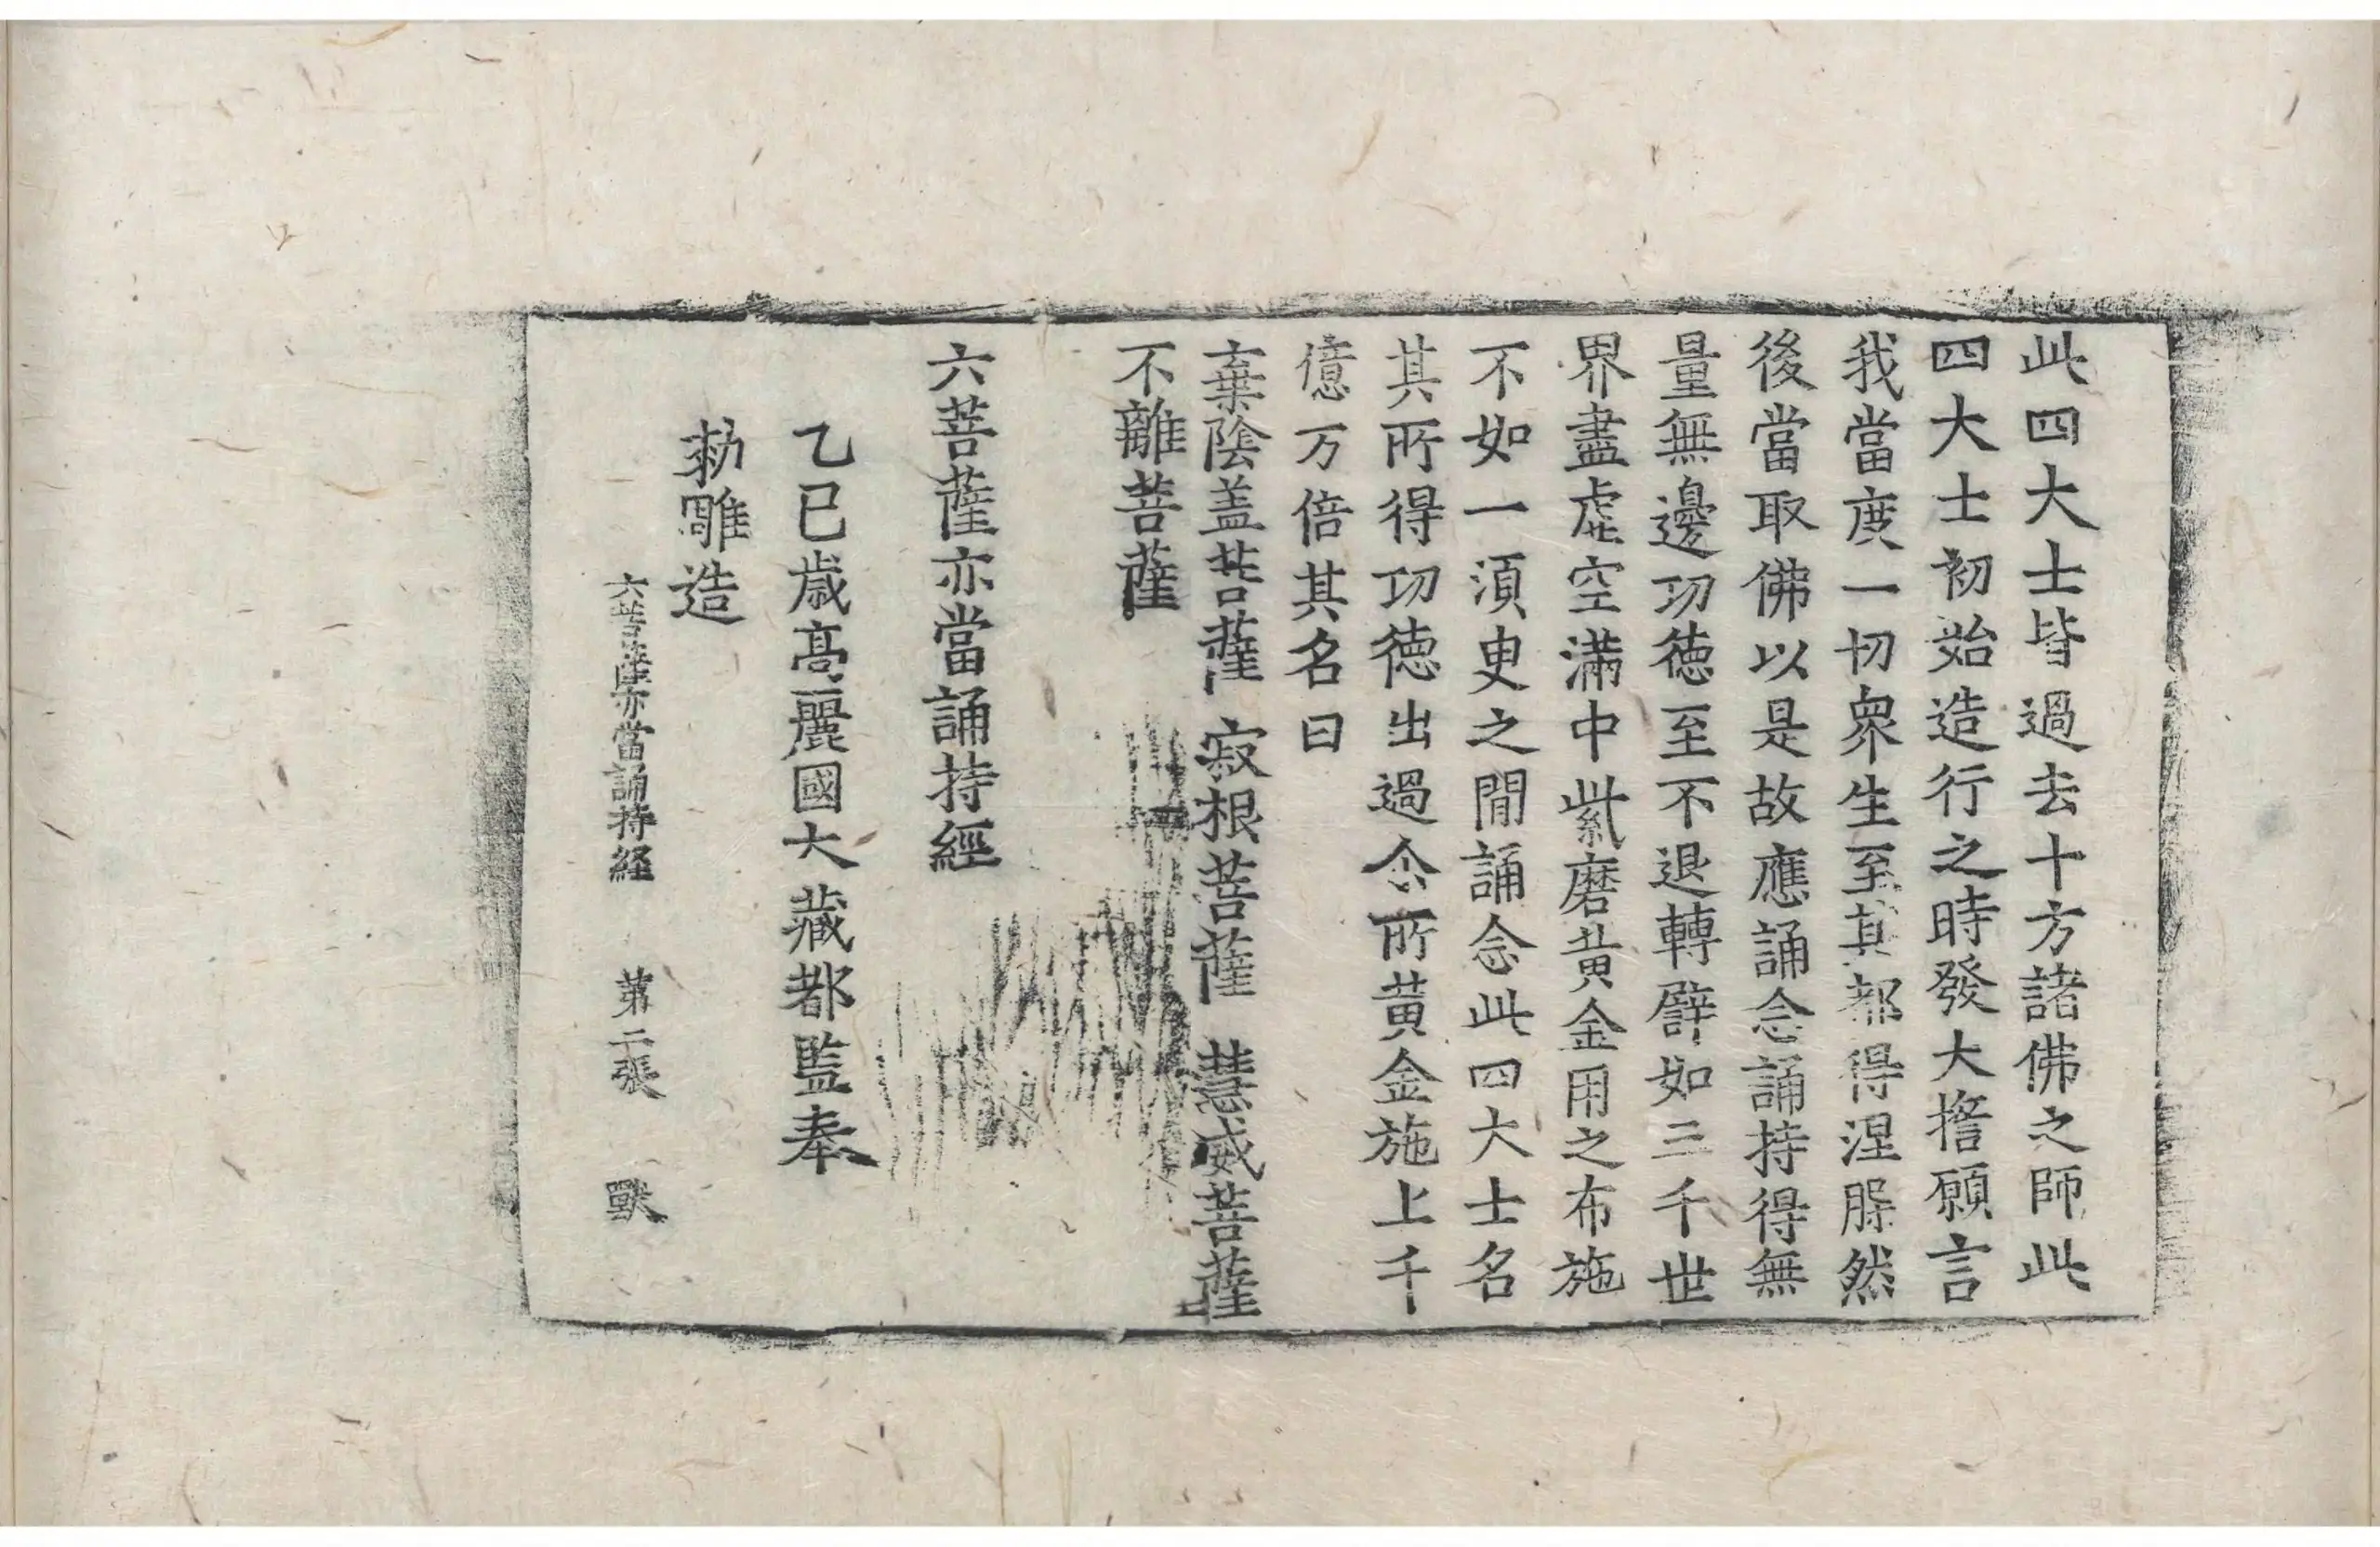 此四大士皆過去十方諸佛之師此
四大士初始造行之時發大擔願言
我當度一切衆生至其都得涅脲然
後當取佛以是故應誦念誦持得無
量無邊功德至不退轉辟如三千世
界盡虛空滿中紫磨黃金用之布施
不如一須臾之閒誦念此四大士名
其所得功德出過念所黃金施上千
億万倍其名曰
棄陰盖菩薩 寂根菩薩 慧威菩薩
不離菩薩
六菩薩亦當誦持經
乙巳歲高麗國大藏都監奉
勅雕造
六菩薩亦當誦持経 第二張 獸